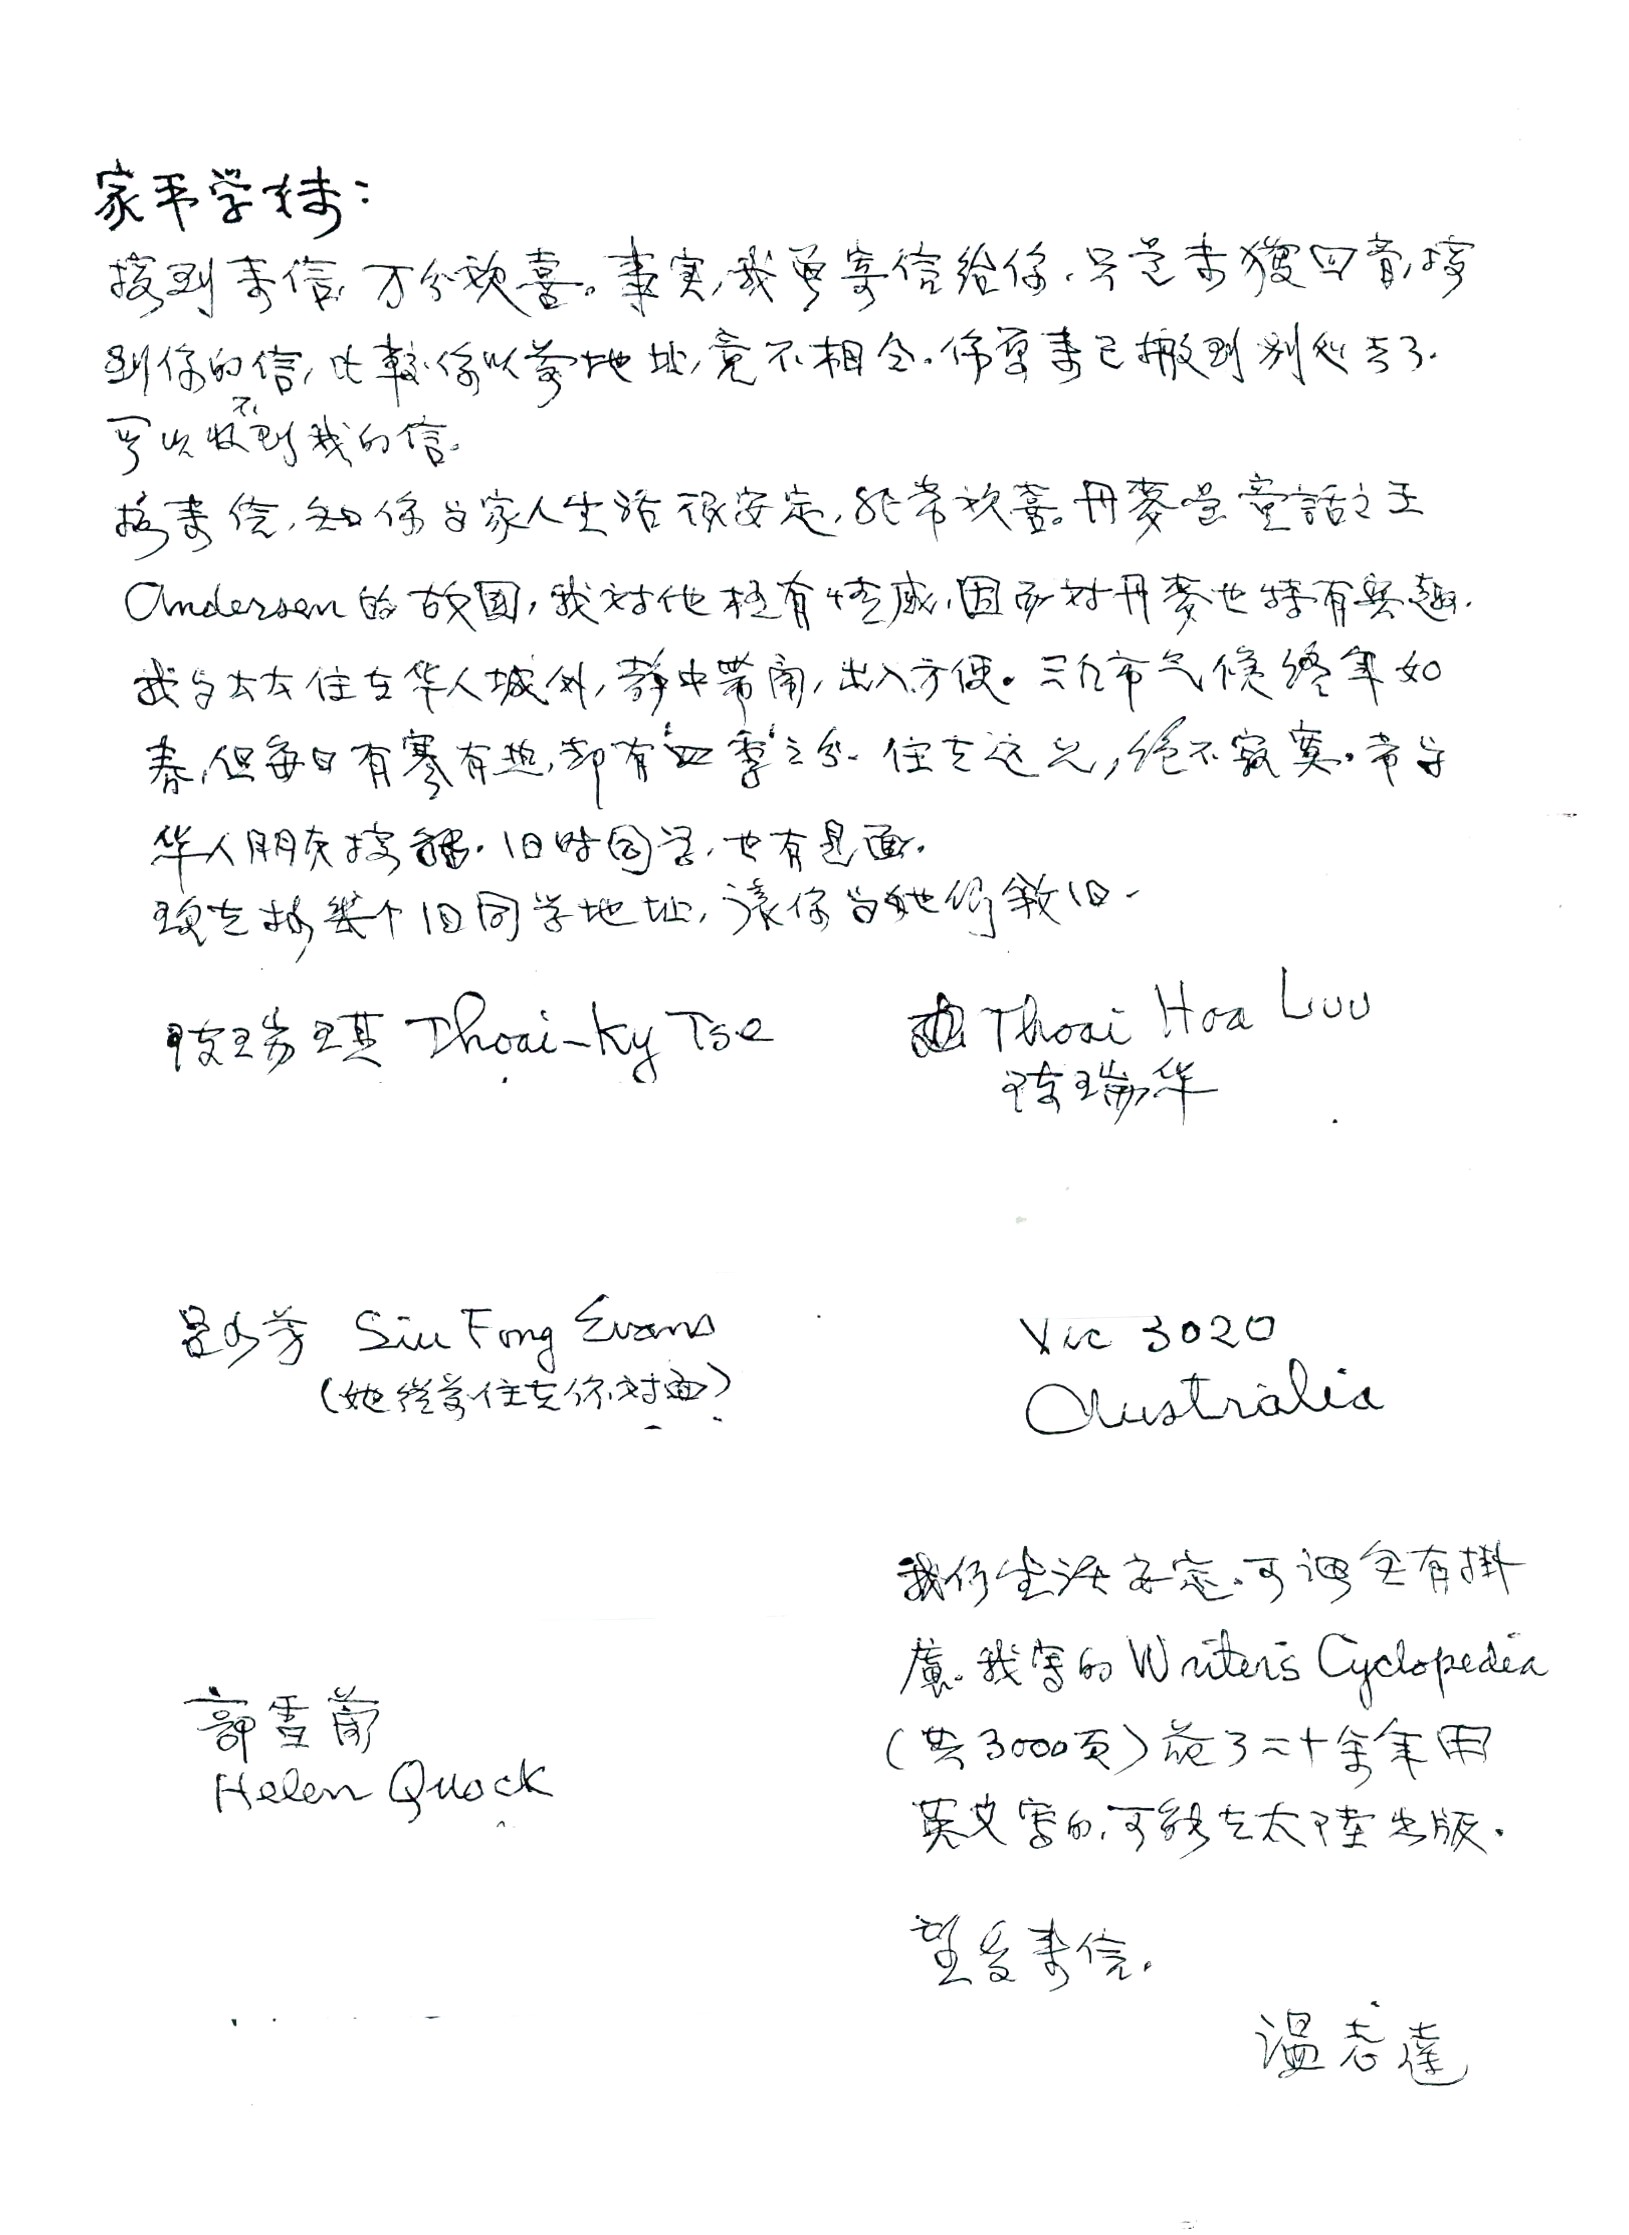 家平学妹：
接到来信，万分欢喜。事实，我曾寄信给你，只是未獲回音，接
到你的信，比較你以前地址，竟不相合。你原来已搬到别处去了。
可以不收到我的信。
接来信，知你与家人生活很安定，非常欢喜。丹麥是童話之王
Andersen的故國，我对他極有情感，因而对丹麥也特有興趣。
我与太太住在华人城外，静中帶闹，出入方便。三凡市气候終年如
春，但每日有寒有热，却有“四季”之分。住在这儿，绝不寂寞。常与
华人朋友接觸。旧时同学，也有見面。
現在抄幾个旧同学地址，讓你与她们敘旧。
陈瑞琪 Thoai-Ky Tse
Thoai Hoa Luu
陈瑞华
吕少芳 Siu Fong Evans
(她從前住在你对面)
Vic 3020
Australia
我们生活安定，可謂全有掛
慮。我寫的Writer's Cyclopedia
(共3000页)花了二十余年用
英文寫的，可能在大陸出版。
郭雪蘭
Helen Quock
望多来信。
温志達